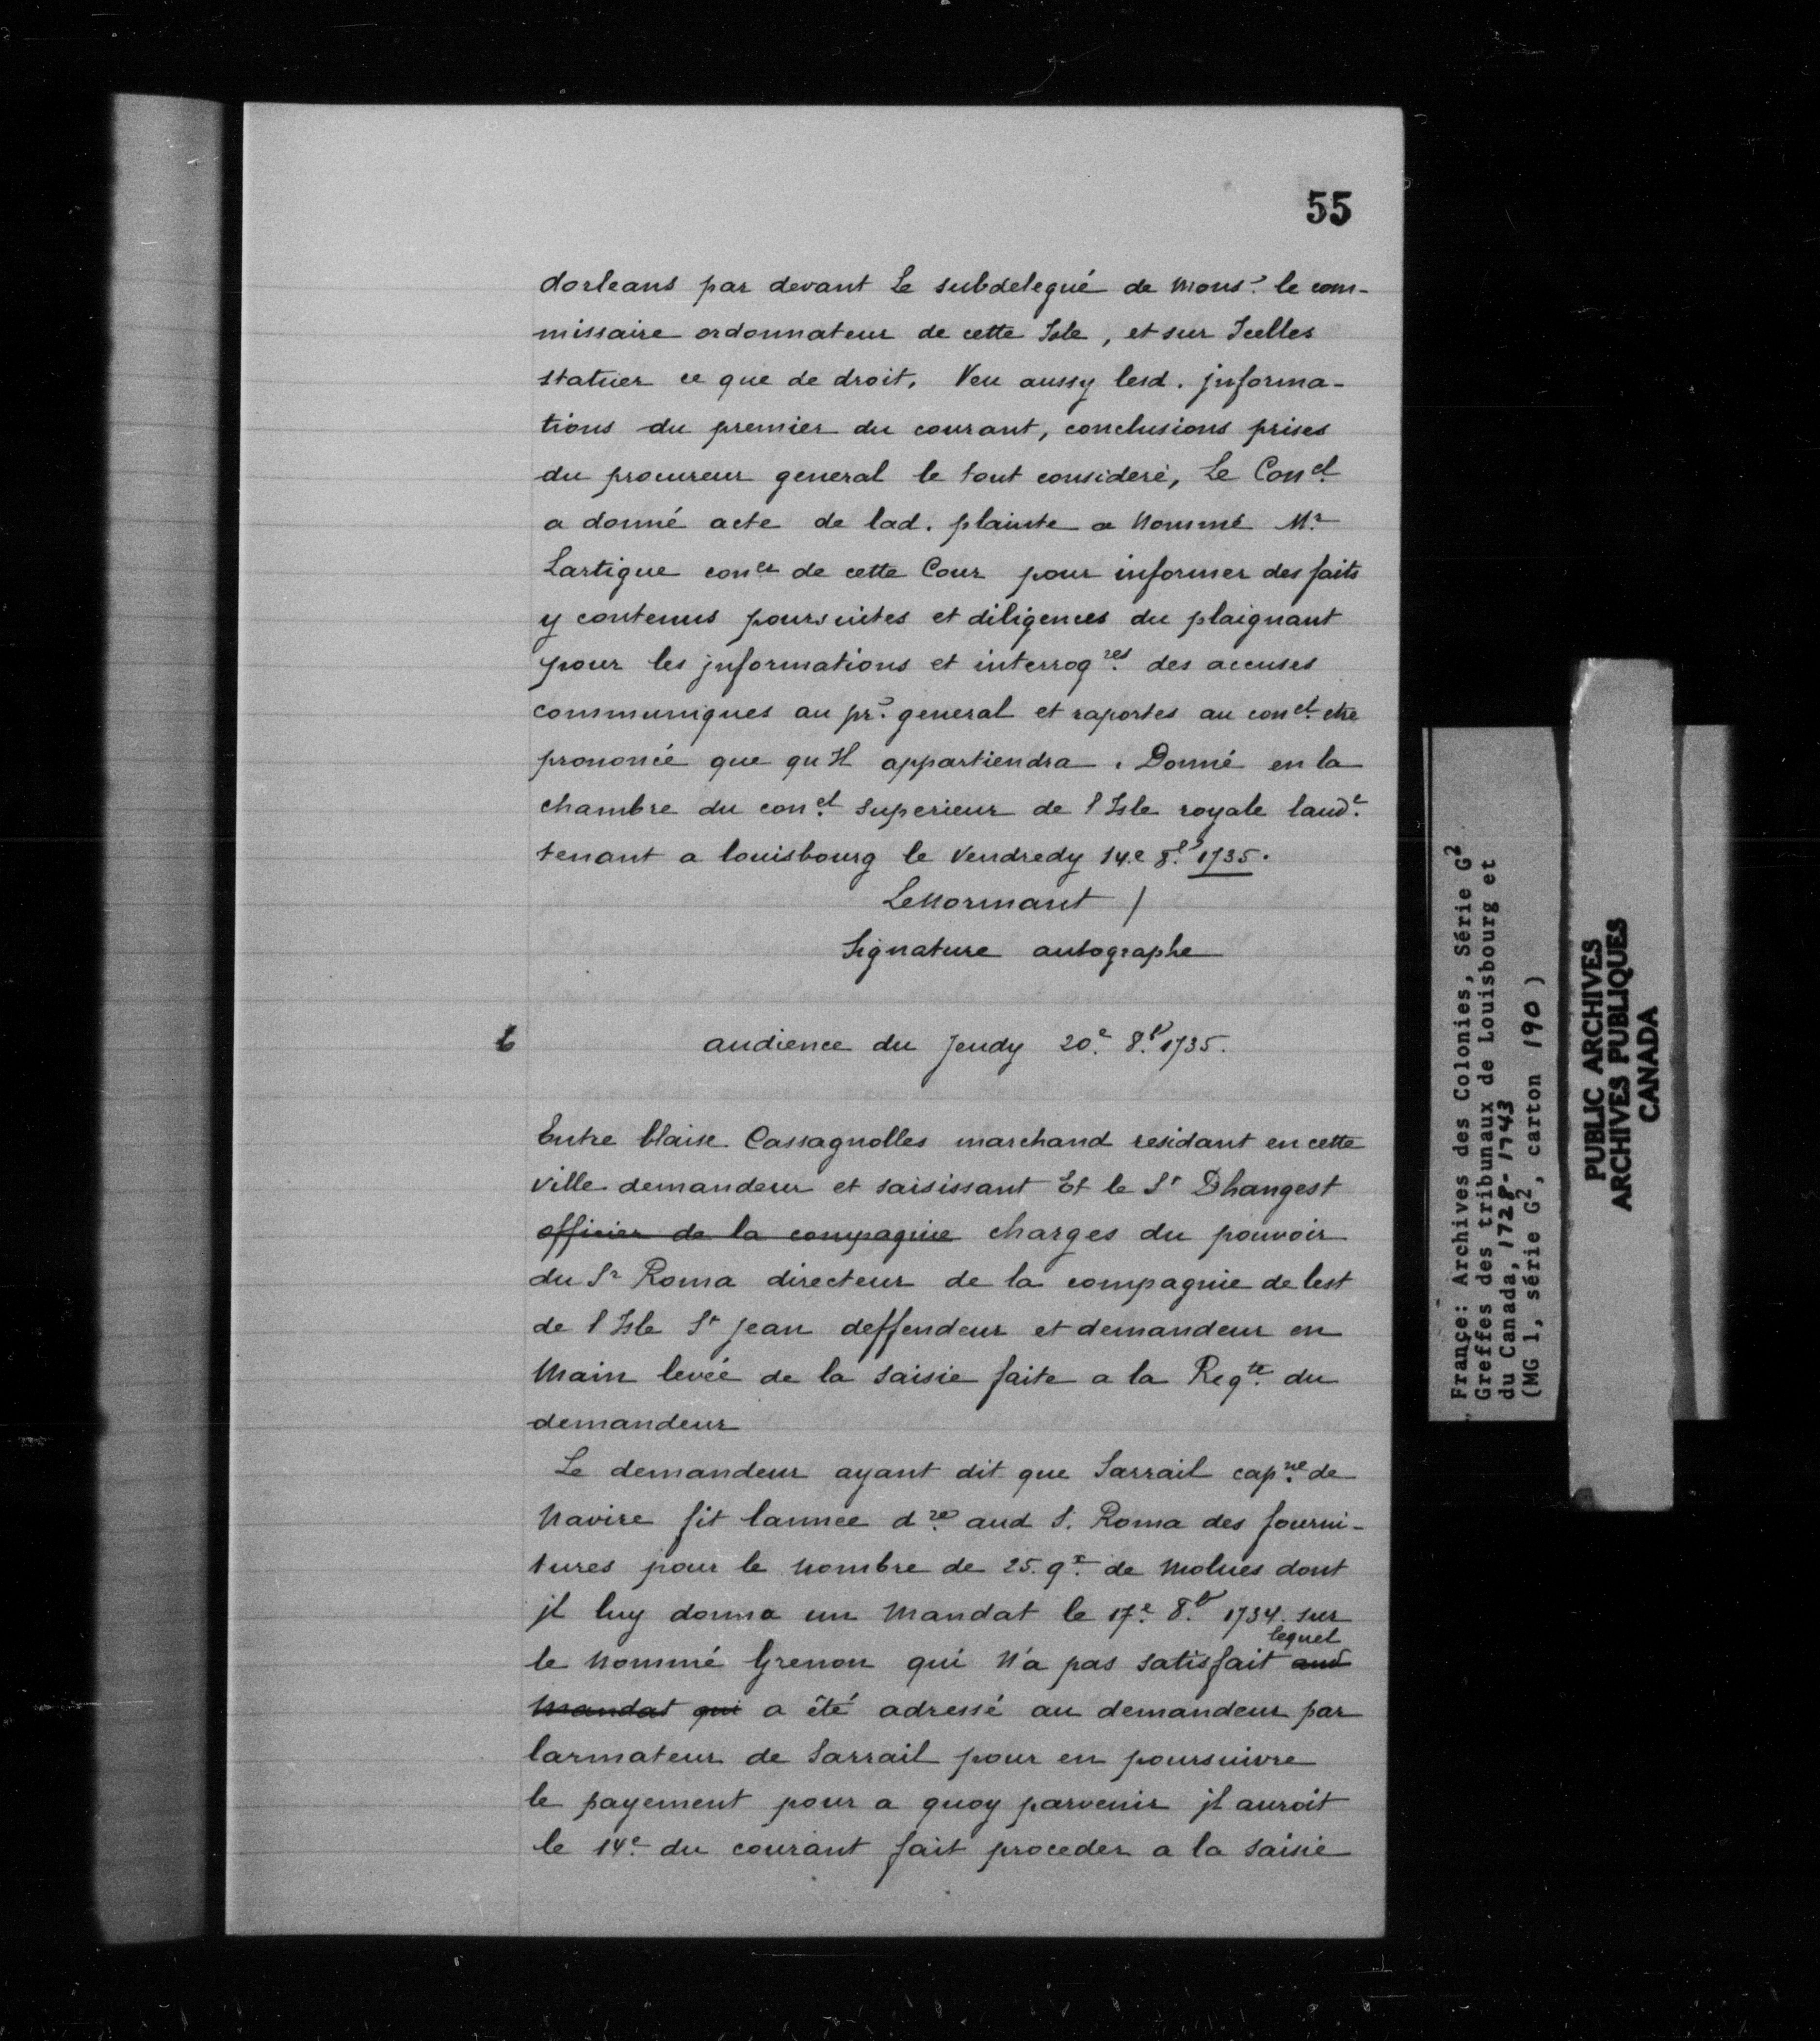 55
dorleans par devant Le subdelegué de Mons.r le com-
missaire ordonnateur de cette Isle, et sur Icelles
statuer ce que de droit. Veu aussy lesd. jnforma-
tions du premier du courant, conclusions prises
du procureur general le tout consideré, Le Con.el
a donné acte de lad. plainte a Nommé M.r
Lartigue con.er de cette Cour pour informer des faits
y contenus poursuites et diligences du plaignant
pour les jnformations et interrog.res des accuses
communiques au pr.r general et raportes au con.el etre
prononcé que qu Il appartiendra. Donné en la
chambre du con.el Superieur de l Isle royale laud.e
tenant a louisbourg le Vendredy 14.e 8.e 1735.
LeNormant /
Signature autographe
6 audience du Jeudy 20.e 8.e 1735.
Entre blaise Cassagnolles marchand residant en cette
ville demandeur et saisissant Et le Sr Dhangest
officier de la compagnie charges du pouvoir
du Sr Roma directeur de la compagnie de lest
de l Isle St Jean deffendeur et demandeur en
Main levée de la Saisie faite a la Reg.te du
demandeur
Le demandeur ayant dit que Sarrail cap.ne de
Navire fit lannee d.re aud S. Roma des fourni-
tures pour le Nombre de 25. q.x de Molues dont
jl luy donna un Mandat le 17.e 8.e 1734. sur
lequel
le Nommé Grenon qui N'a pas satisfait aud
Mandat qui a été adressé au demandeur par
larmateur de Sarrail pour en poursuivre
le payement pour a quoy parvenir jl auroit
le 14.e du courant fait proceder a la saisie
France: Archives des Colonies, Série G2
Greffes des tribunaux de Louisbourg et
du Canada, 1728-1743
(MG 1, série G2, carton 190 )
PUBLIC ARCHIVES
ARCHIVES PUBLIQUES
CANADA